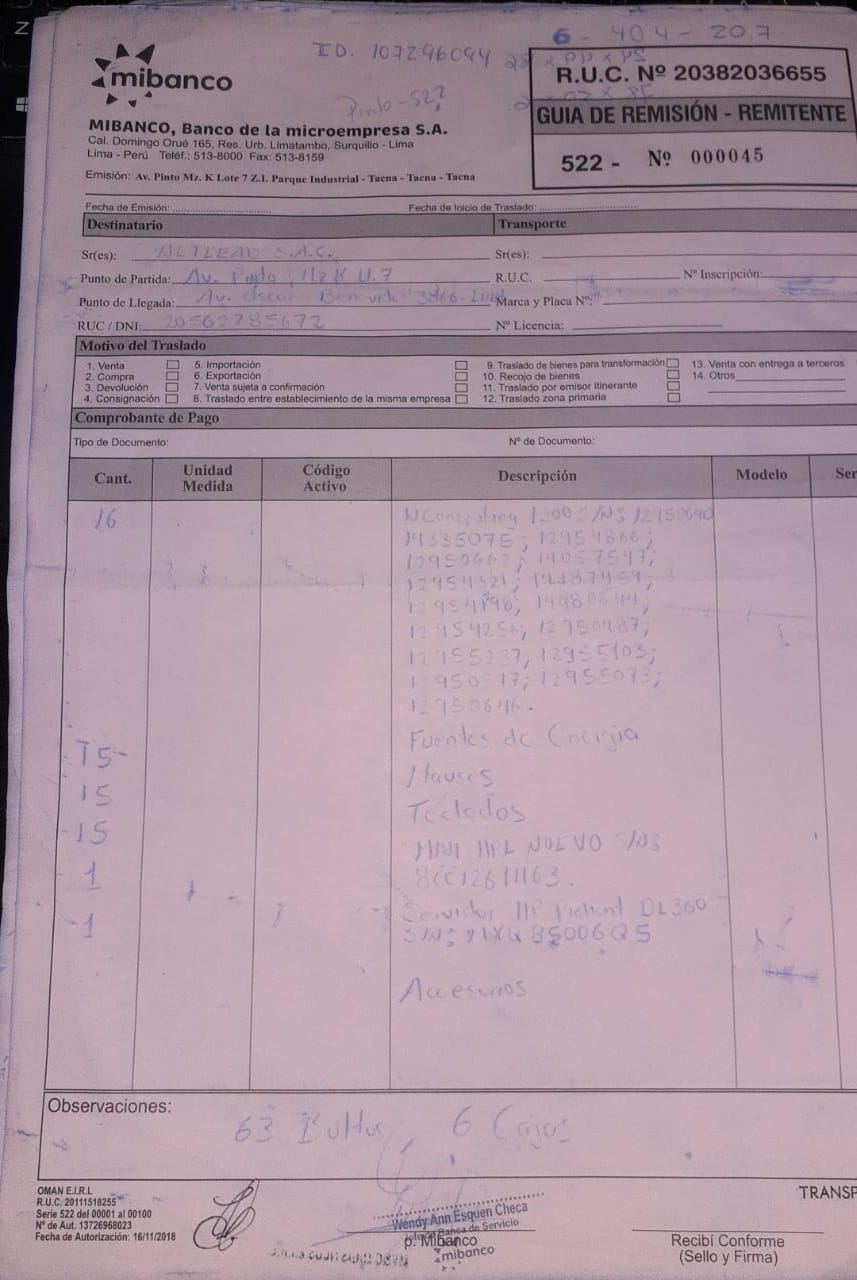 6 - 404 - 20.7
ID. 107296094
mibanco
R.U.C. Nº 20382036655
Pinto - 522
GUIA DE REMISIÓN - REMITENTE
522 - Nº 000045
MIBANCO, Banco de la microempresa S.A.
Cal. Domingo Orué 165, Res. Urb. Limatambo, Surquillo - Lima
Lima - Perú Teléf.: 513-8000 Fax: 513-8159
Emisión: Av. Pinto Mz. K Lote 7 Z.I. Parque Industrial - Tacna - Tacna - Tacna
Fecha de Emisión: Fecha de Inicio de Traslado:
Destinatario Transporte
Sr(es): S.A.C. Sr(es):
Punto de Partida: Av. Pinto Mz K Lt. 7 R.U.C. Nº Inscripción:
Punto de Llegada: Av. Oscar Benavides 3866 - Marca y Placa Nº:
RUC / DNI: 20562785672 Nº Licencia:
Motivo del Traslado
1. Venta 5. Importación 9. Traslado de bienes para transformación 13. Venta con entrega a terceros
2. Compra 6. Exportación 10. Recojo de bienes 14. Otros
3. Devolución 7. Venta sujeta a confirmación 11. Traslado por emisor itinerante
4. Consignación 8. Traslado entre establecimiento de la misma empresa 12. Traslado zona primaria
Comprobante de Pago
Tipo de Documento: Nº de Documento:
Cant. Unidad Medida Código Activo Descripción Modelo Ser
16 NComputing L300 S/NS 12950640
14335075; 12954866;
12950662; 14057547;
12954321;
12954198;
12954256; 12950487;
12955237, 12955103;
12955073;
12950646.
15 Fuentes de Energia
15 Mauses
15 Teclados
1 NUEVO S/NS
1 Servidor HP Proliant DL360
Accesorios
Observaciones:
63 Bultos, 6 Cajas
OMAN E.I.R.L
R.U.C. 20111518255
Serie 522 del 00001 al 00100
Nº de Aut. 13726968023
Fecha de Autorización: 16/11/2018
Wendy Ann Esquen Checa
Banca de Servicio
p. Mibanco
mibanco
TRANSP
Recibí Conforme
(Sello y Firma)